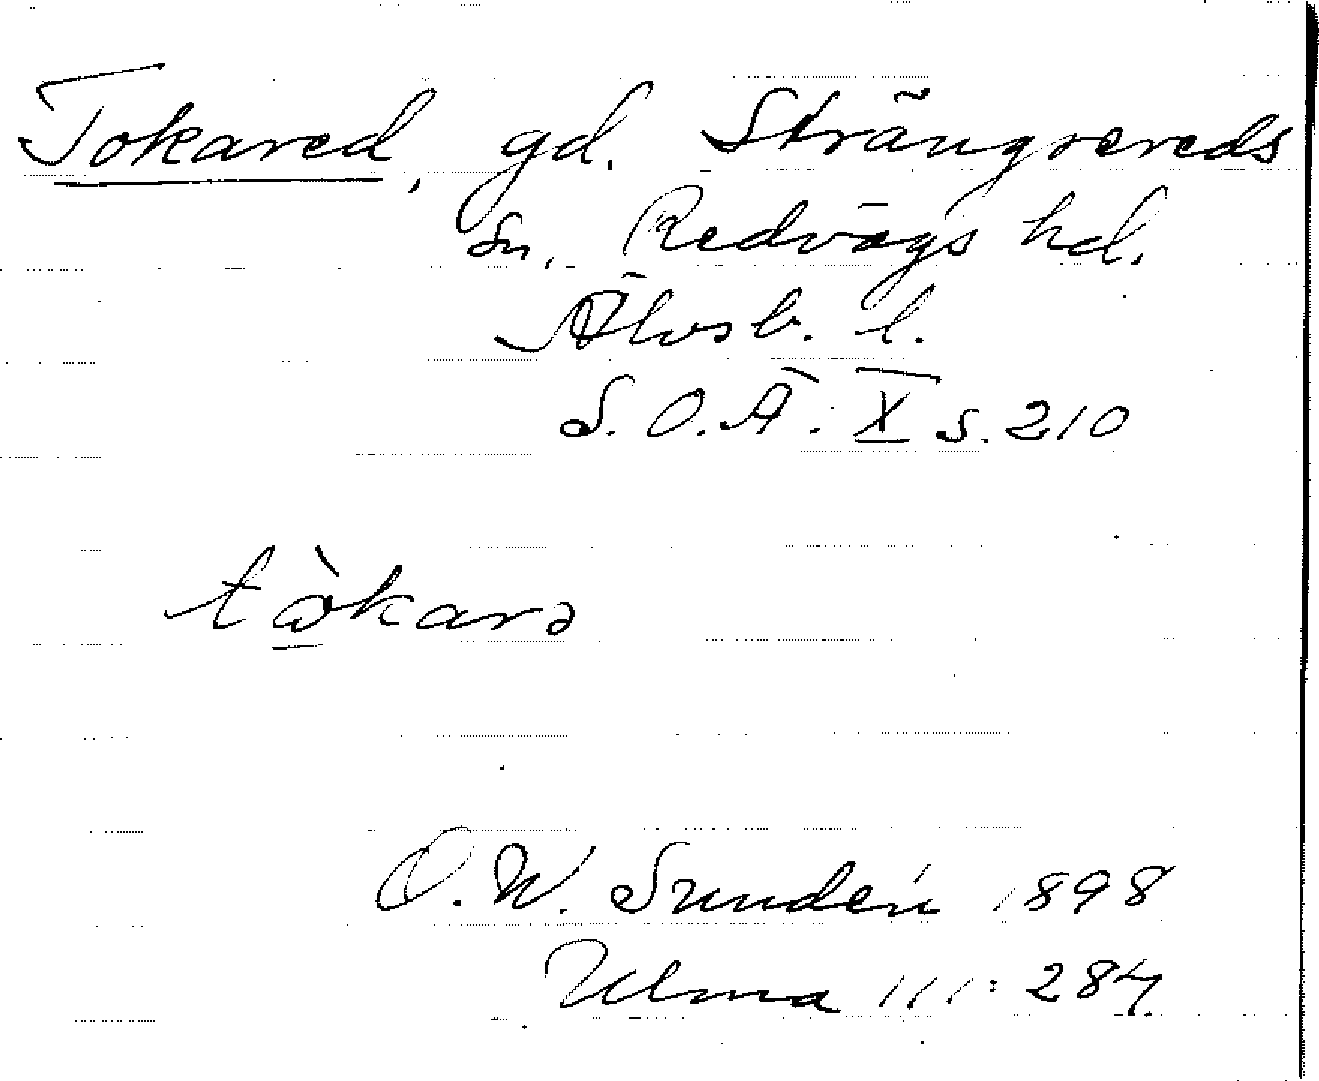 Tokared, gd. Strängsereds
sn, Redvägs hd.
Älvsb. l.
S.O.Ä: X s. 210
tòkarə
O.W. Sundén 1898
Ulma 111:284